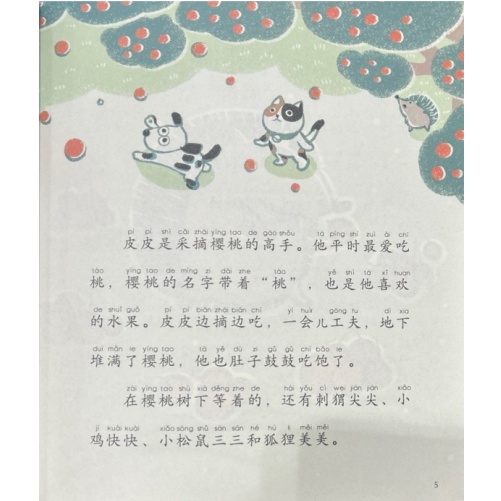 pí pí shì cǎi zhāi yīng táo de gāo shǒu tā píng shí zuì ài chī
皮皮是采摘樱桃的高手。他平时最爱吃
táo yīng táo de míng zi dài zhe táo yě shì tā xǐ huan
桃，樱桃的名字带着“桃”，也是他喜欢
de shuǐ guǒ pí pí biān zhāi biān chī yí huìr gōng fu dì xia
的水果。皮皮边摘边吃，一会儿工夫，地下
duī mǎn le yīng táo tā yě dù zi gǔ gǔ chī bǎo le
堆满了樱桃，他也肚子鼓鼓吃饱了。
zài yīng táo shù xià děng zhe de hái yǒu cì wei jiān jiān xiǎo
在樱桃树下等着的，还有刺猬尖尖、小
jī kuài kuài xiǎo sōng shǔ sān sān hé hú li měi měi
鸡快快、小松鼠三三和狐狸美美。
5